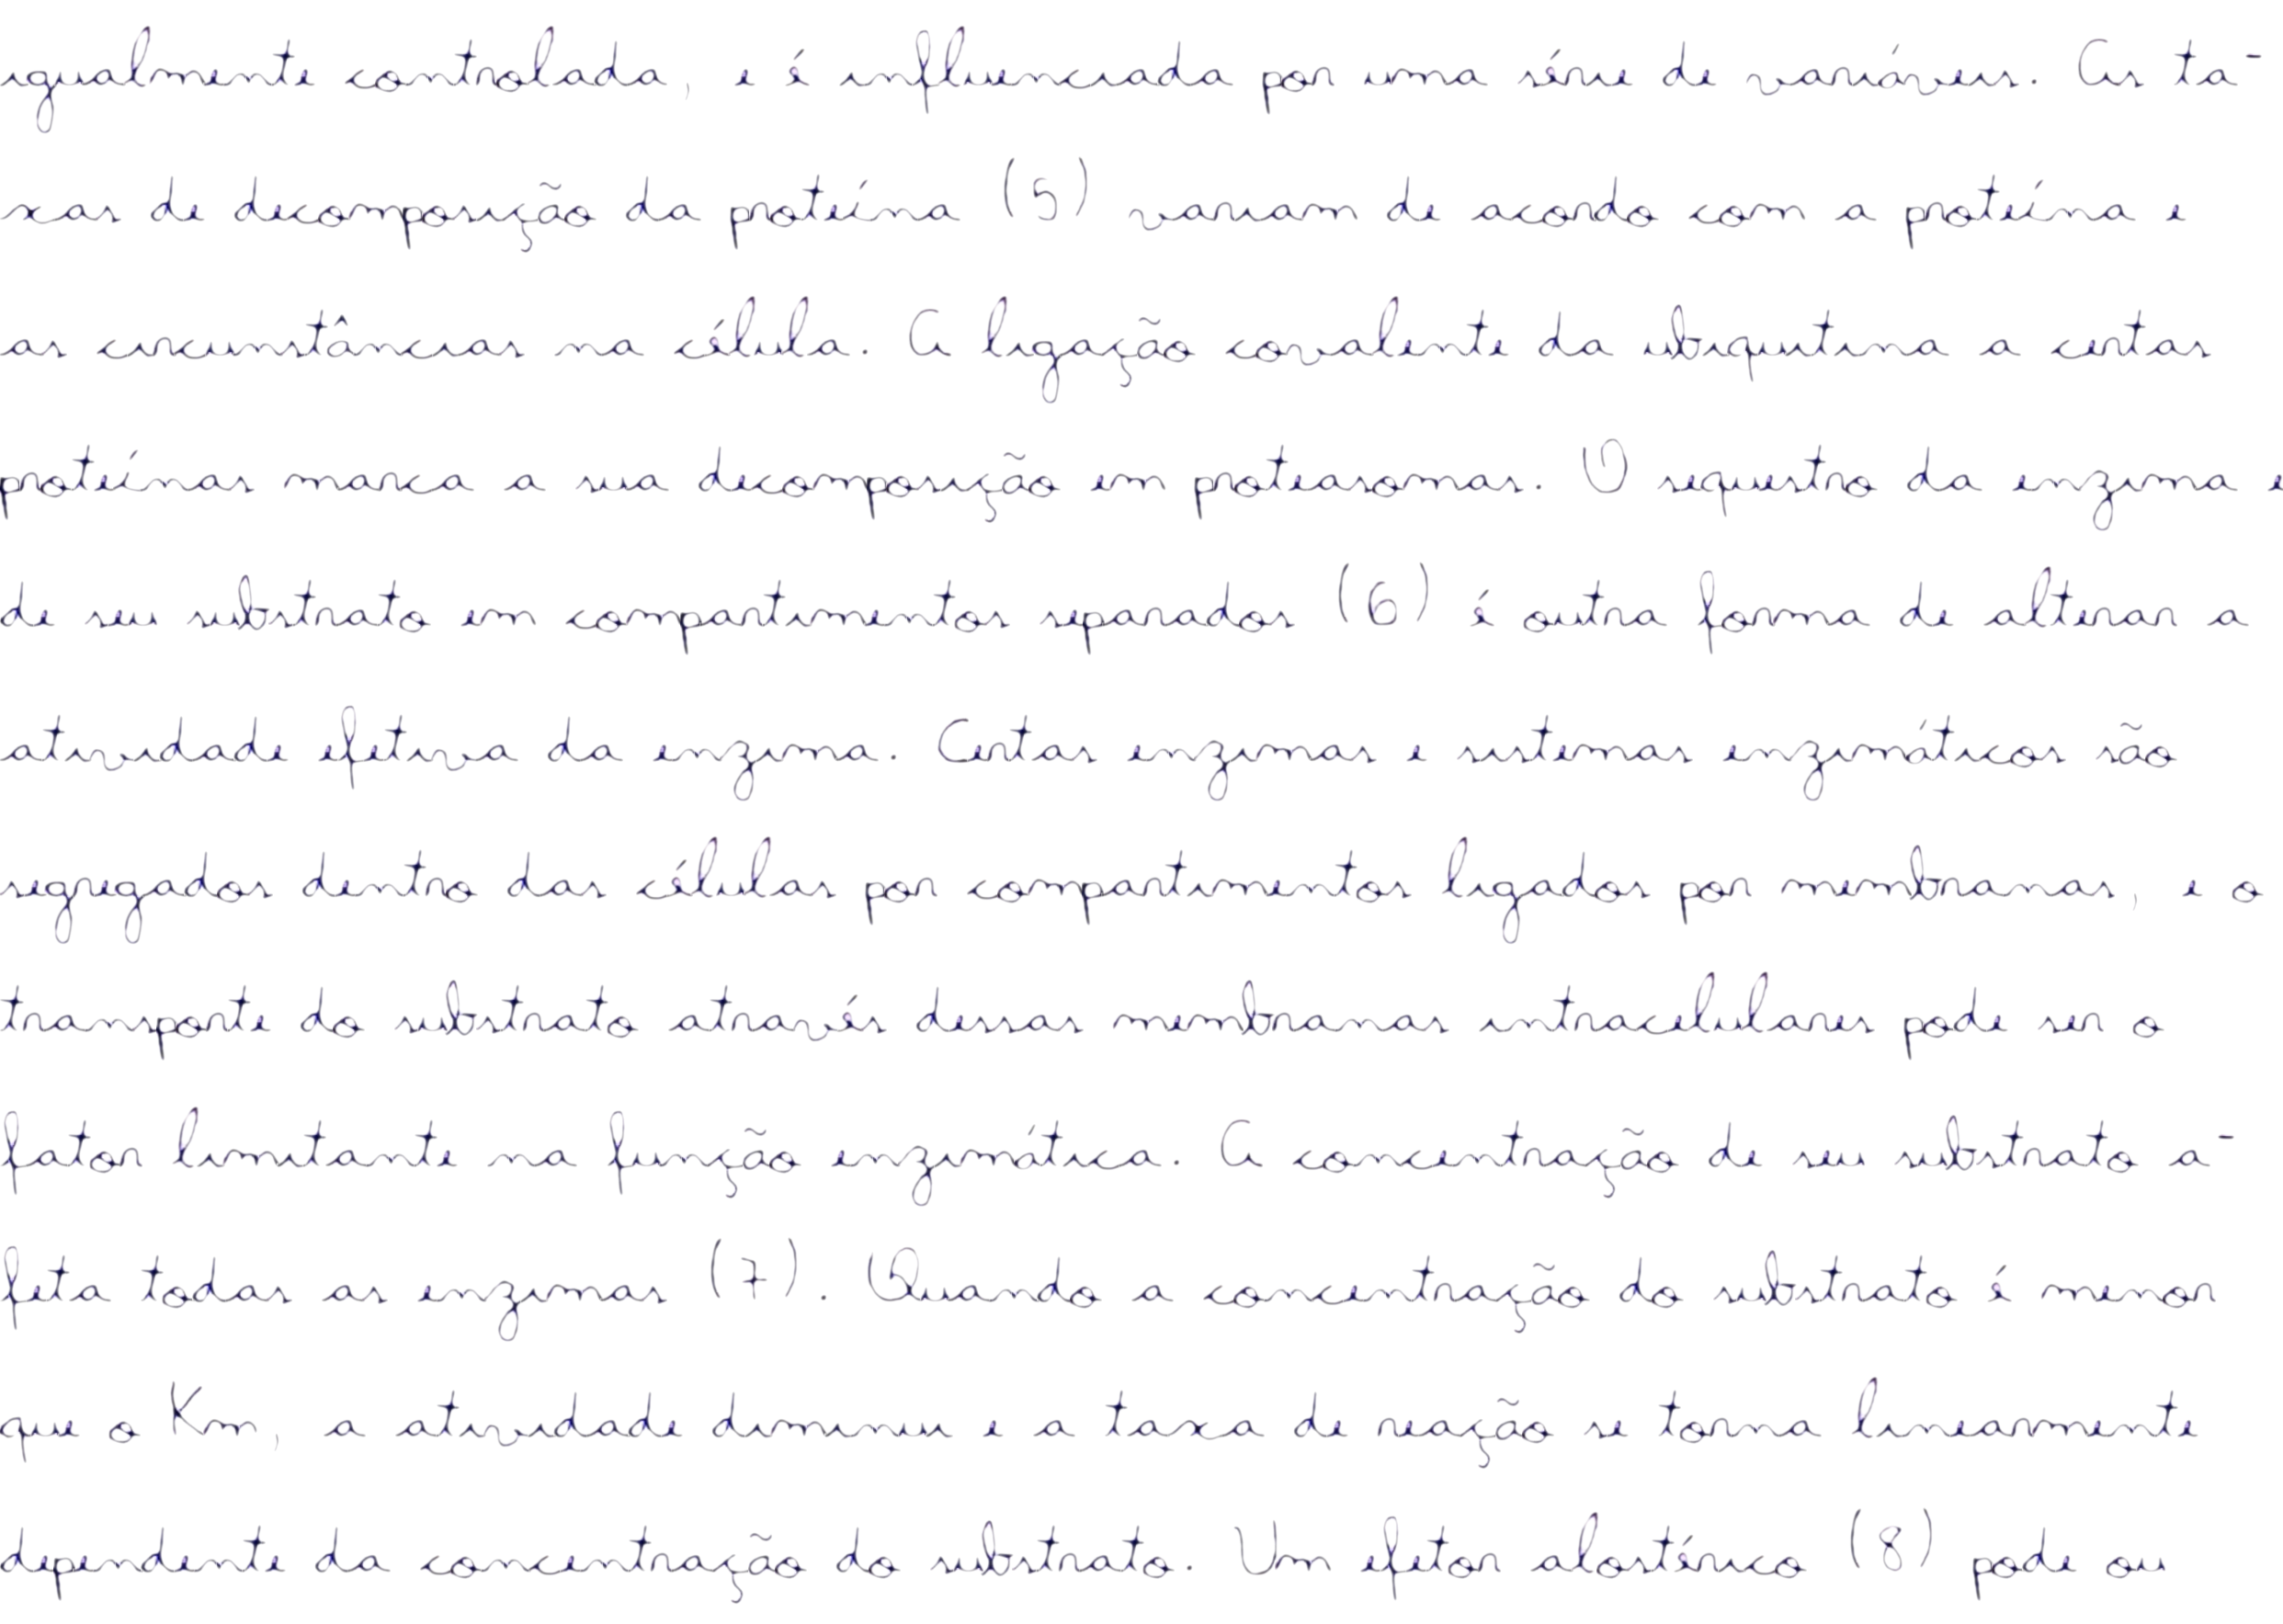 igualmente controlada, e é influenciada por uma série de variáveis. As ta-
xas de decomposição da proteína (5) variam de acordo com a proteína e
as circunstâncias na célula. A ligação covalente da ubiquitina a certas
proteínas marca a sua decomposição em proteasomas. O sequestro da enzima e
de seu substrato em compartimentos separados (6) é outra forma de alterar a
atividade efetiva da enzima. Certas enzimas e sistemas enzimáticos são
segregados dentro das células por compartimentos ligados por membranas, e o
transporte do substrato através dessas membranas intracelulares pode ser o
fator limitante na função enzimática. A concentração de seu substrato a-
feta todas as enzimas (7). Quando a concentração do substrato é menor
que o Km, a atividade diminui e a taxa de reação se torna linearmente
dependente da concentração do substrato. Um efetor alostérico (8) pode ou